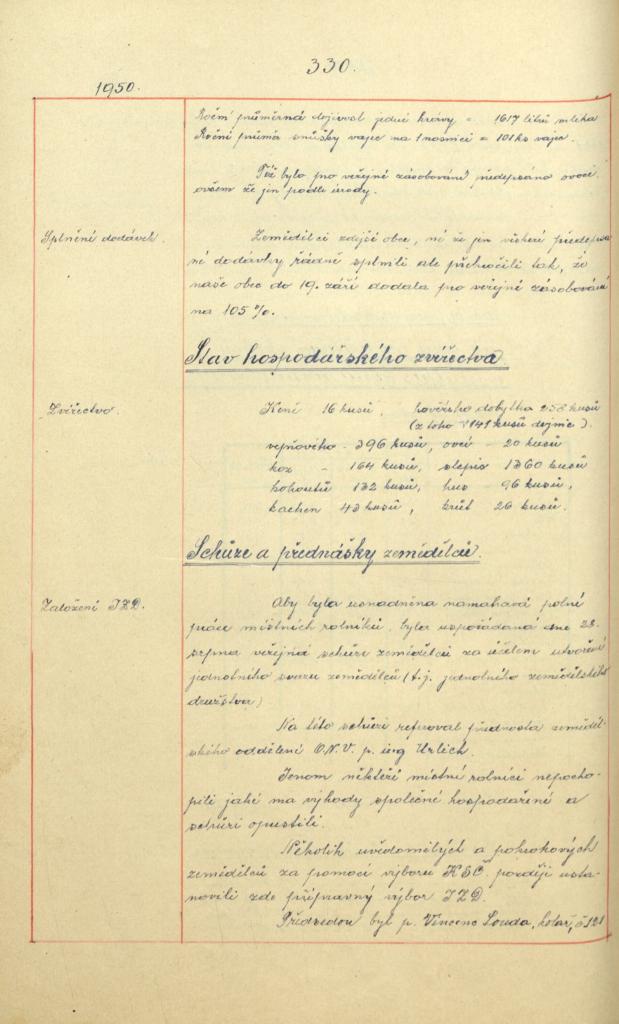 330.
1950.
Roční průměrná dojivost jedné krávy = 1617 litrů mléka
Roční průměr snůšky vajec na 1 nosnici = 101 ks vajec.
Též bylo pro veřejné zásobování předepsáno ovoce
ovšem že jen podle úrody.
Splnění dodávek.
Zemědělci zdejší obce, ne že jen veškeré předepsa
né dodávky řádně splnili ale překročili tak, že
naše obec do 19. září dodala pro veřejné zásobování
na 105 %.
Stav hospodářského zvířectva
Zvířectvo.
Koní 16 kusů, hovězího dobytka 258 kusů
(z toho 141 kusů dojnic).
vepřového - 396 kusů, ovcí - 20 kusů
koz - 164 kusů, slepic 1360 kusů
kohoutů 132 kusů, hus - 96 kusů,
kachen 43 kusů, krůt 26 kusů.
Schůze a přednášky zemědělců.
Založení JZD.
Aby byla usnadněna namahavá polní
práce místních rolníků, byla uspořádaná dne 23.
srpna veřejná schůze zemědělců za účelem utvoření
jednotného svazu zemědělců (t.j. jednotného zemědělského
družstva)
Na této schůzi referoval přednosta zeměděl-
ského oddělení O.N.V. p. ing Urlich.
Jenom někteří místní rolníci nepocho-
pili jaké má výhody společné hospodaření a
schůzi opustili.
Několik uvědomělých a pokrokových
zemědělců za pomoci výboru KSČ později usta-
novili zde přípravný výbor JZD.
Předsedou byl p. Vincenc Louda, kolař, č 121